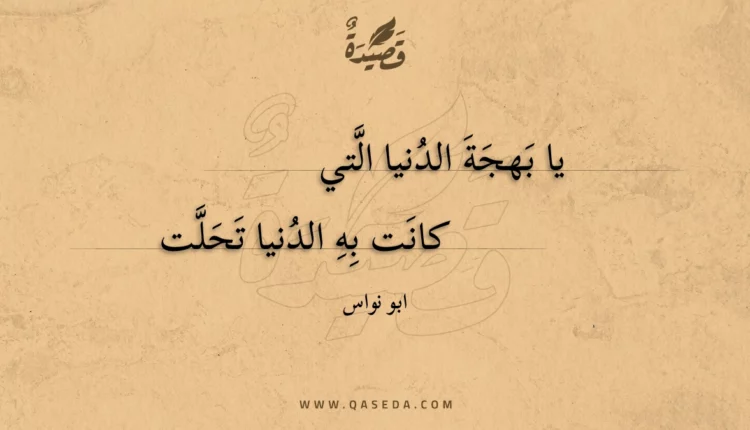 قَصِيدَةٌ
يا بَهجَةَ الدُنيا الَّتي
كانَت بِهِ الدُنيا تَحَلَّت
ابو نواس
WWW.QASEDA.COM